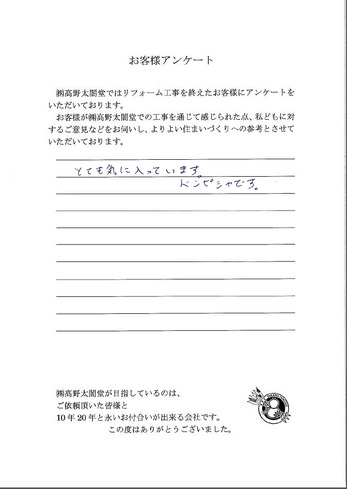 お客様アンケート
㈱高野太閤堂ではリフォーム工事を終えたお客様にアンケートを
いただいております。
お客様が㈱高野太閤堂での工事を通じて感じられた点、私どもに対
するご意見などをお伺いし、よりよい住まいづくりへの参考とさせて
いただいております。
とても気に入っています。
ドンピシャです。
㈱高野太閤堂が目指しているのは、
ご依頼頂いた皆様と
10年20年と永いお付合いが出来る会社です。
この度はありがとうございました。